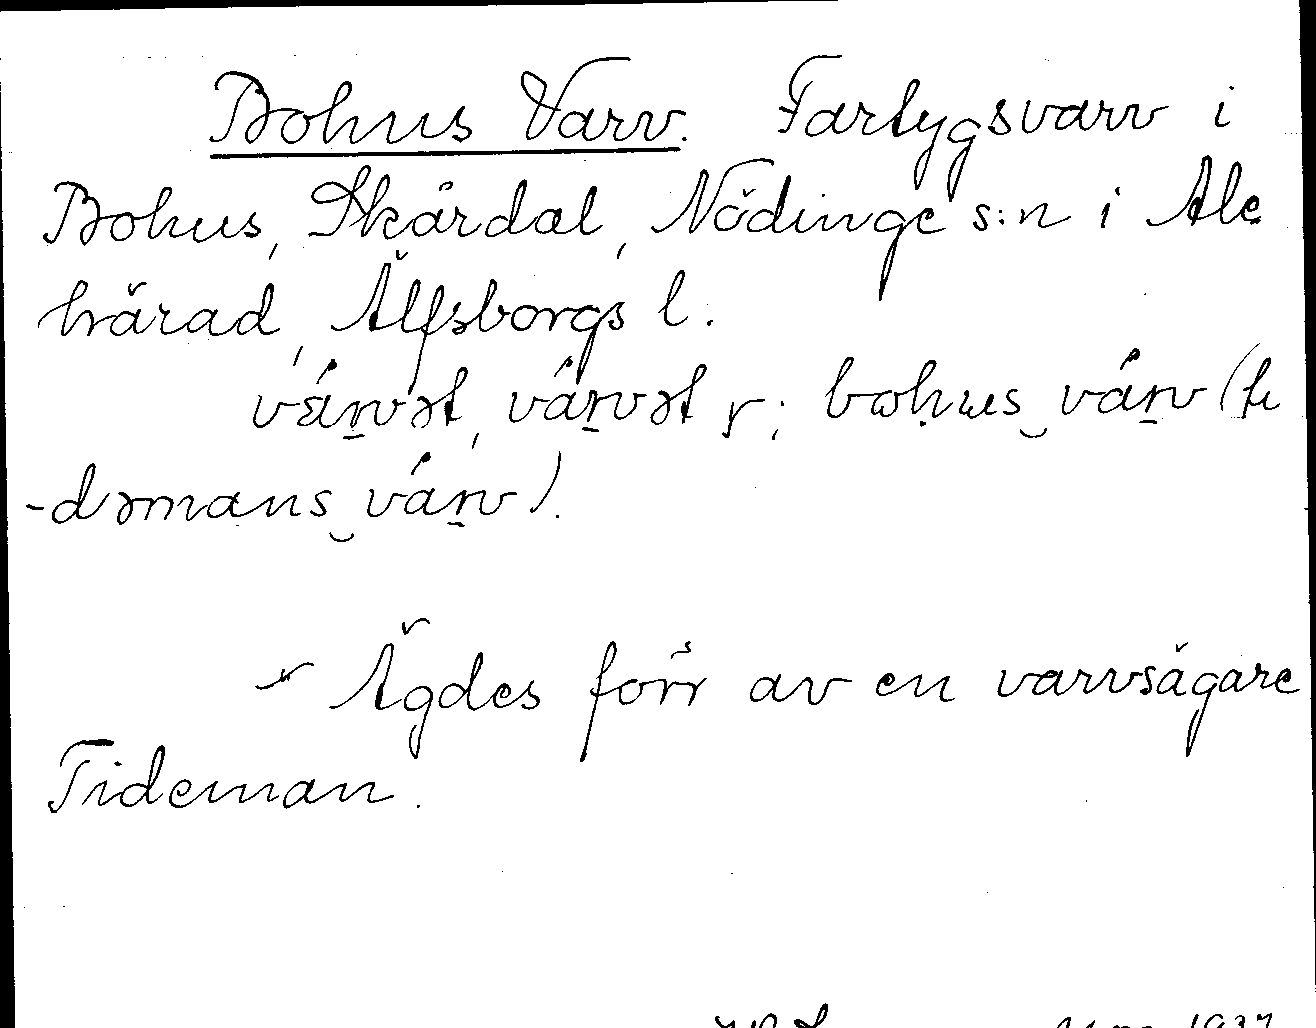 Bohus Varv. Fartygsvarv i
Bohus, Skårdal, Nödinge s:n i Ale
härad, Älfsborgs l.
várvət, várvət r; bohus varv (ti
-dəmans varv).
Ägdes förr av en varvsägare
Tideman.
1937